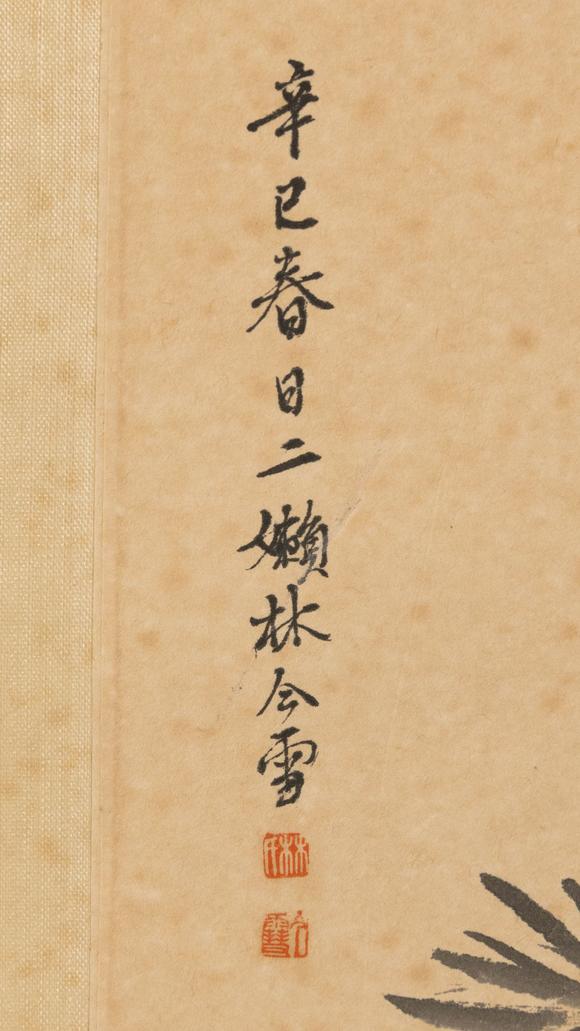 辛巳春日二嬾林今雪
林氏
今雪